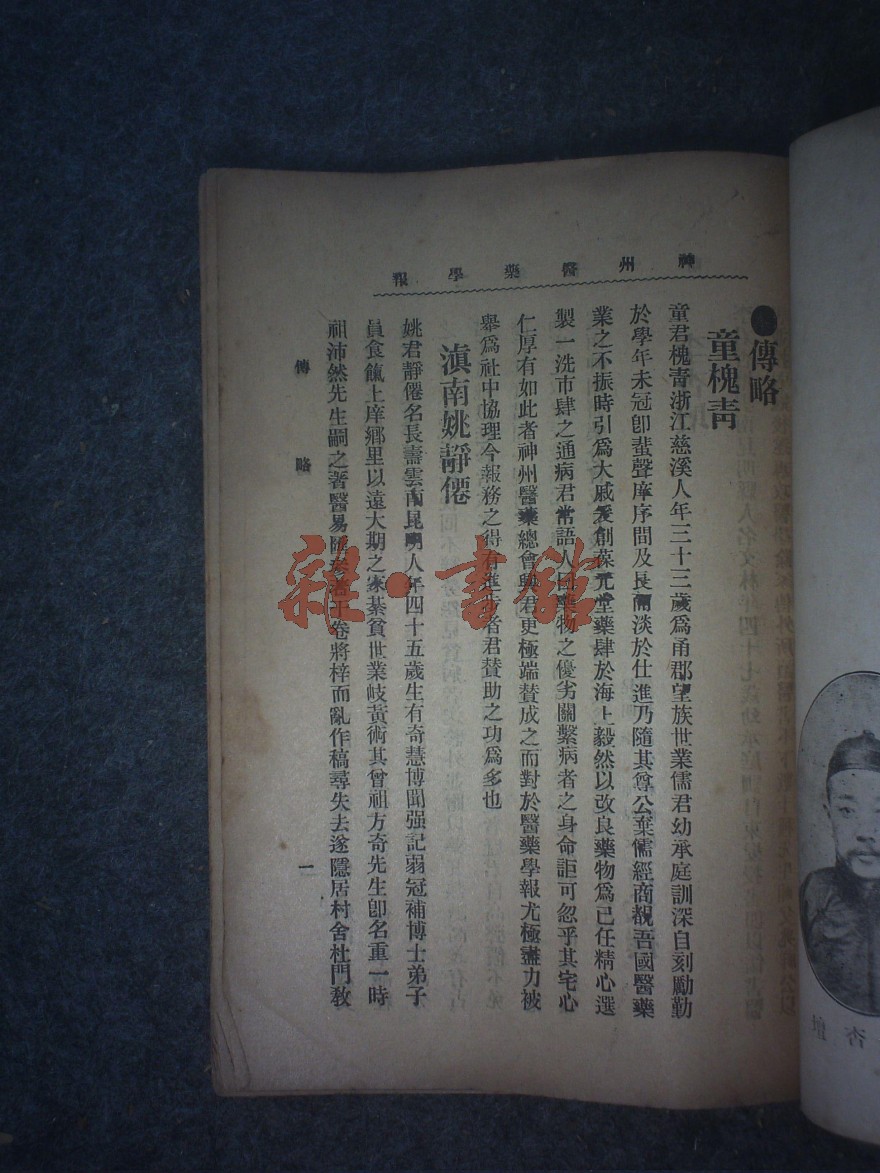 神州醫藥學報
傳略
童槐青
童君槐青浙江慈溪人年三十三歲爲甬郡望族世業儒君幼承庭訓深自刻勵勤
於學年未冠卽蜚聲庠序間及長而淡於仕進乃隨其尊公棄儒經商覩吾國醫藥
業之不振時引爲大戚爰創葆元堂藥肆於海上毅然以改良藥物爲已任精心選
製一洗市肆之通病君常語人曰藥物之優劣關繫病者之身命詎可忽乎其宅心
仁厚有如此者神州醫藥總會興君更極端贊成之而對於醫藥學報尤極盡力被
舉爲社中協理今報務之得有進步者君贊助之功爲多也
滇南姚靜僊
姚君靜僊名長壽雲南昆明人年四十五歲生有奇慧博聞强記弱冠補博士弟子
員食餼上庠鄉里以遠大期之家綦貧世業岐黃術其曾祖方奇先生卽名重一時
祖沛然先生嗣之著醫易匯參若干卷將梓而亂作稿尋失去遂隱居村舍杜門敎
傳略
一
雜·書館
杏壇